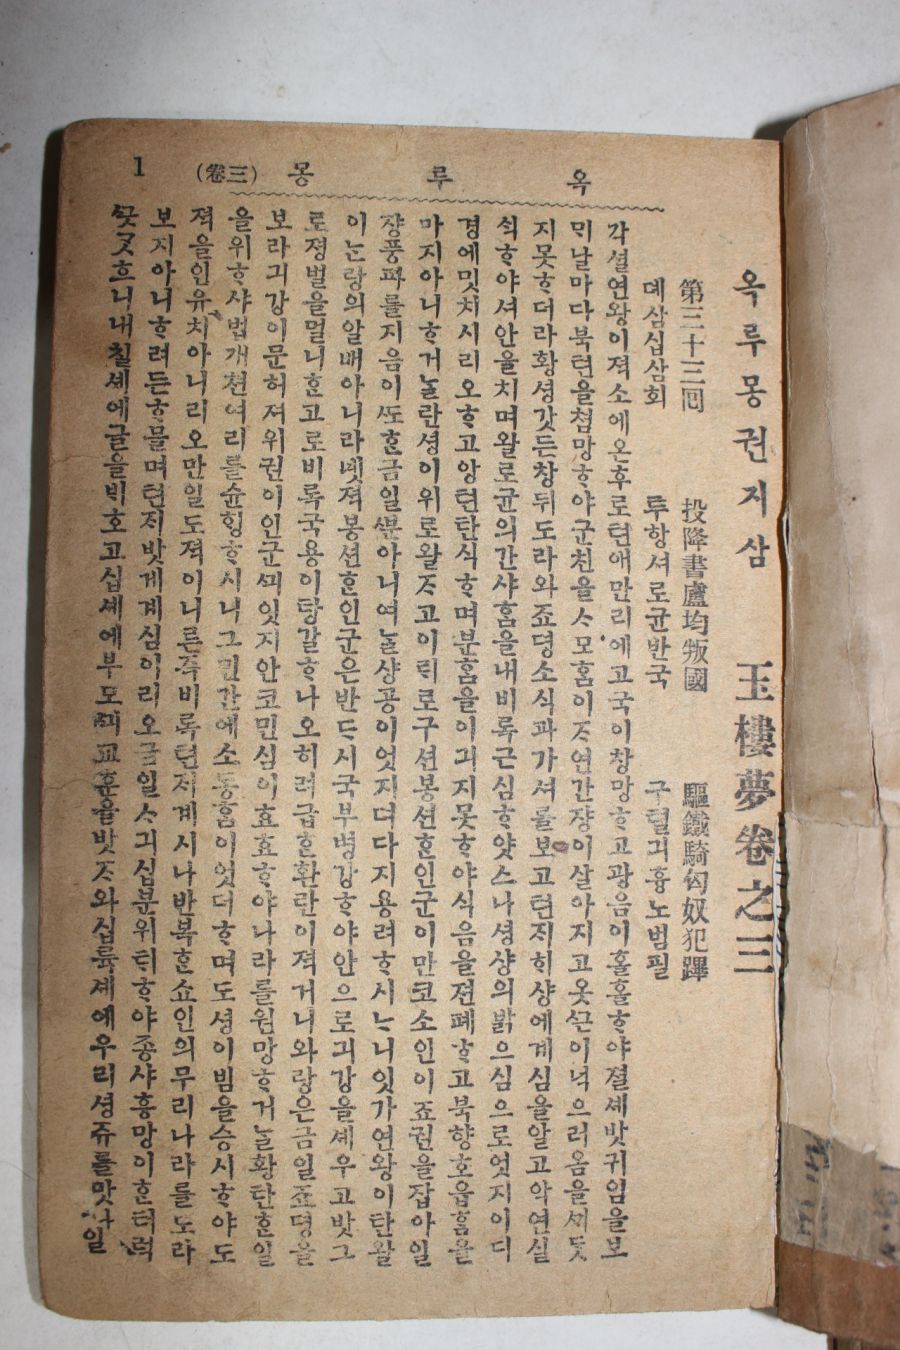 옥루몽 (卷三) 1
옥루몽권지삼 玉樓夢卷之三
第三十三回 投降書盧均叛國 驅鐵騎匈奴犯蹕
뎨삼십삼회 투항셔로균반국 구텰긔흉노범필
각셜연왕이젹소에온후로텬애만리에고국이창망ᄒᆞ고광음이훌훌ᄒᆞ야졀셰밧귀임을보
ᄆᆡ날마다북텬을쳠망ᄒᆞ야군친을ᄉᆞ모홈이ᄌᆞ연간쟝이살아지고옷ᄭᅳᆫ이넉으러옴을ᄭᆡ닷
지못ᄒᆞ더라황셩갓든창뒤도라와죠뎡소식과가셔를보고텬ᄌᆡ희샹에계심을알고악연실
ᄉᆡᆨᄒᆞ야셔안을치며왈로균의간샤홈을내비록근심ᄒᆞ얏스나셩샹의밝으심으로엇지이디
경에밋치시리오ᄒᆞ고앙텬탄식ᄒᆞ며분홈을이긔지못ᄒᆞ야식음을젼폐ᄒᆞ고북향호읍홈을
마지아니ᄒᆞ거ᄂᆞᆯ란셩이위로왈ᄌᆞ고이ᄅᆡ로구션봉션ᄒᆞᆫ인군이만코소인이죠권을잡아일
쟝풍파를지음이ᄯᅩᄒᆞᆫ금일ᄲᅮᆫ아니여ᄂᆞᆯ샹공이엇지뎌다지용려ᄒᆞ시ᄂᆞ니잇가연왕이탄왈
이ᄂᆞᆫ랑의알배아니라녯젹봉션ᄒᆞᆫ인군은반ᄃᆞ시국부병강ᄒᆞ야안으로긔강을셰우고밧그
로졍벌을멀니ᄒᆞᆫ고로비록국용이탕갈ᄒᆞ나오히려급ᄒᆞᆫ환란이젹거니와랑은금일죠뎡을
보라긔강이문허져위권이인군ᄭᅴ잇지안코민심이효효ᄒᆞ야나라를원망ᄒᆞ거ᄂᆞᆯ황탄ᄒᆞᆫ일
을위ᄒᆞ샤법개쳔여리를슌ᄒᆡᆼᄒᆞ시니그민간에소동홈이엇더ᄒᆞ며도셩이빔을승시ᄒᆞ야도
젹을인유치아니리오만일도젹이니른즉비록텬ᄌᆡ계시나반복ᄒᆞᆫ쇼인의무리나라를도라
보지아니ᄒᆞ려든ᄒᆞ물며텬ᄌᆡ밧게계심이리오금일ᄉᆞ긔십분위ᄐᆡᄒᆞ야종샤흥망이ᄒᆞᆫ터럭
ᄭᅳᆺᄀᆞᆺᄒᆞ니내칠셰에글을ᄇᆡ호고십셰에부모ᄭᅴ교훈을밧ᄌᆞ와십륙셰에우리셩쥬를맛나일